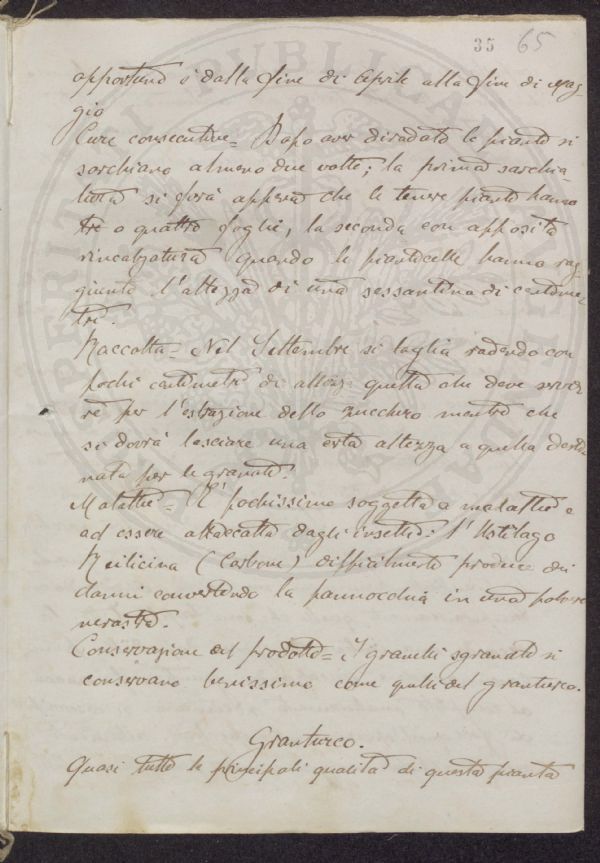 35 65
opportuno è dalla fine di Aprile alla fine di Mag-
gio
Cure consecutive = Dopo aver diradato le piante si
sarchiano almeno due volte; la prima sarchia-
tura si farà appena che le tenere piante hanno
tre o quattro foglie, la seconda con apposita
rincalzatura quando le pianticelle hanno rag-
giunto l'altezza di una sessantina di centime-
tri.
Raccolta = Nel Settembre si taglia radendo con
pochi centimetri di altezza quella che deve servi-
re per l'estrazione dello zucchero mentre che
si dovrà lasciare una certa altezza a quella desti-
nata per le granate.
Malattie = E' pochissimo soggetta a malattie e
ad essere attaccata dagli insetti: l'Ustilago
(Carbone) difficilmente produce dei
danni convertendo la pannocchia in una polvere
nerastra.
Conservazione del prodotto = I granelli sgranati si
conservano benissimo come quelli del granturco.
Granturco.
Quasi tutte le principali qualità di questa pianta